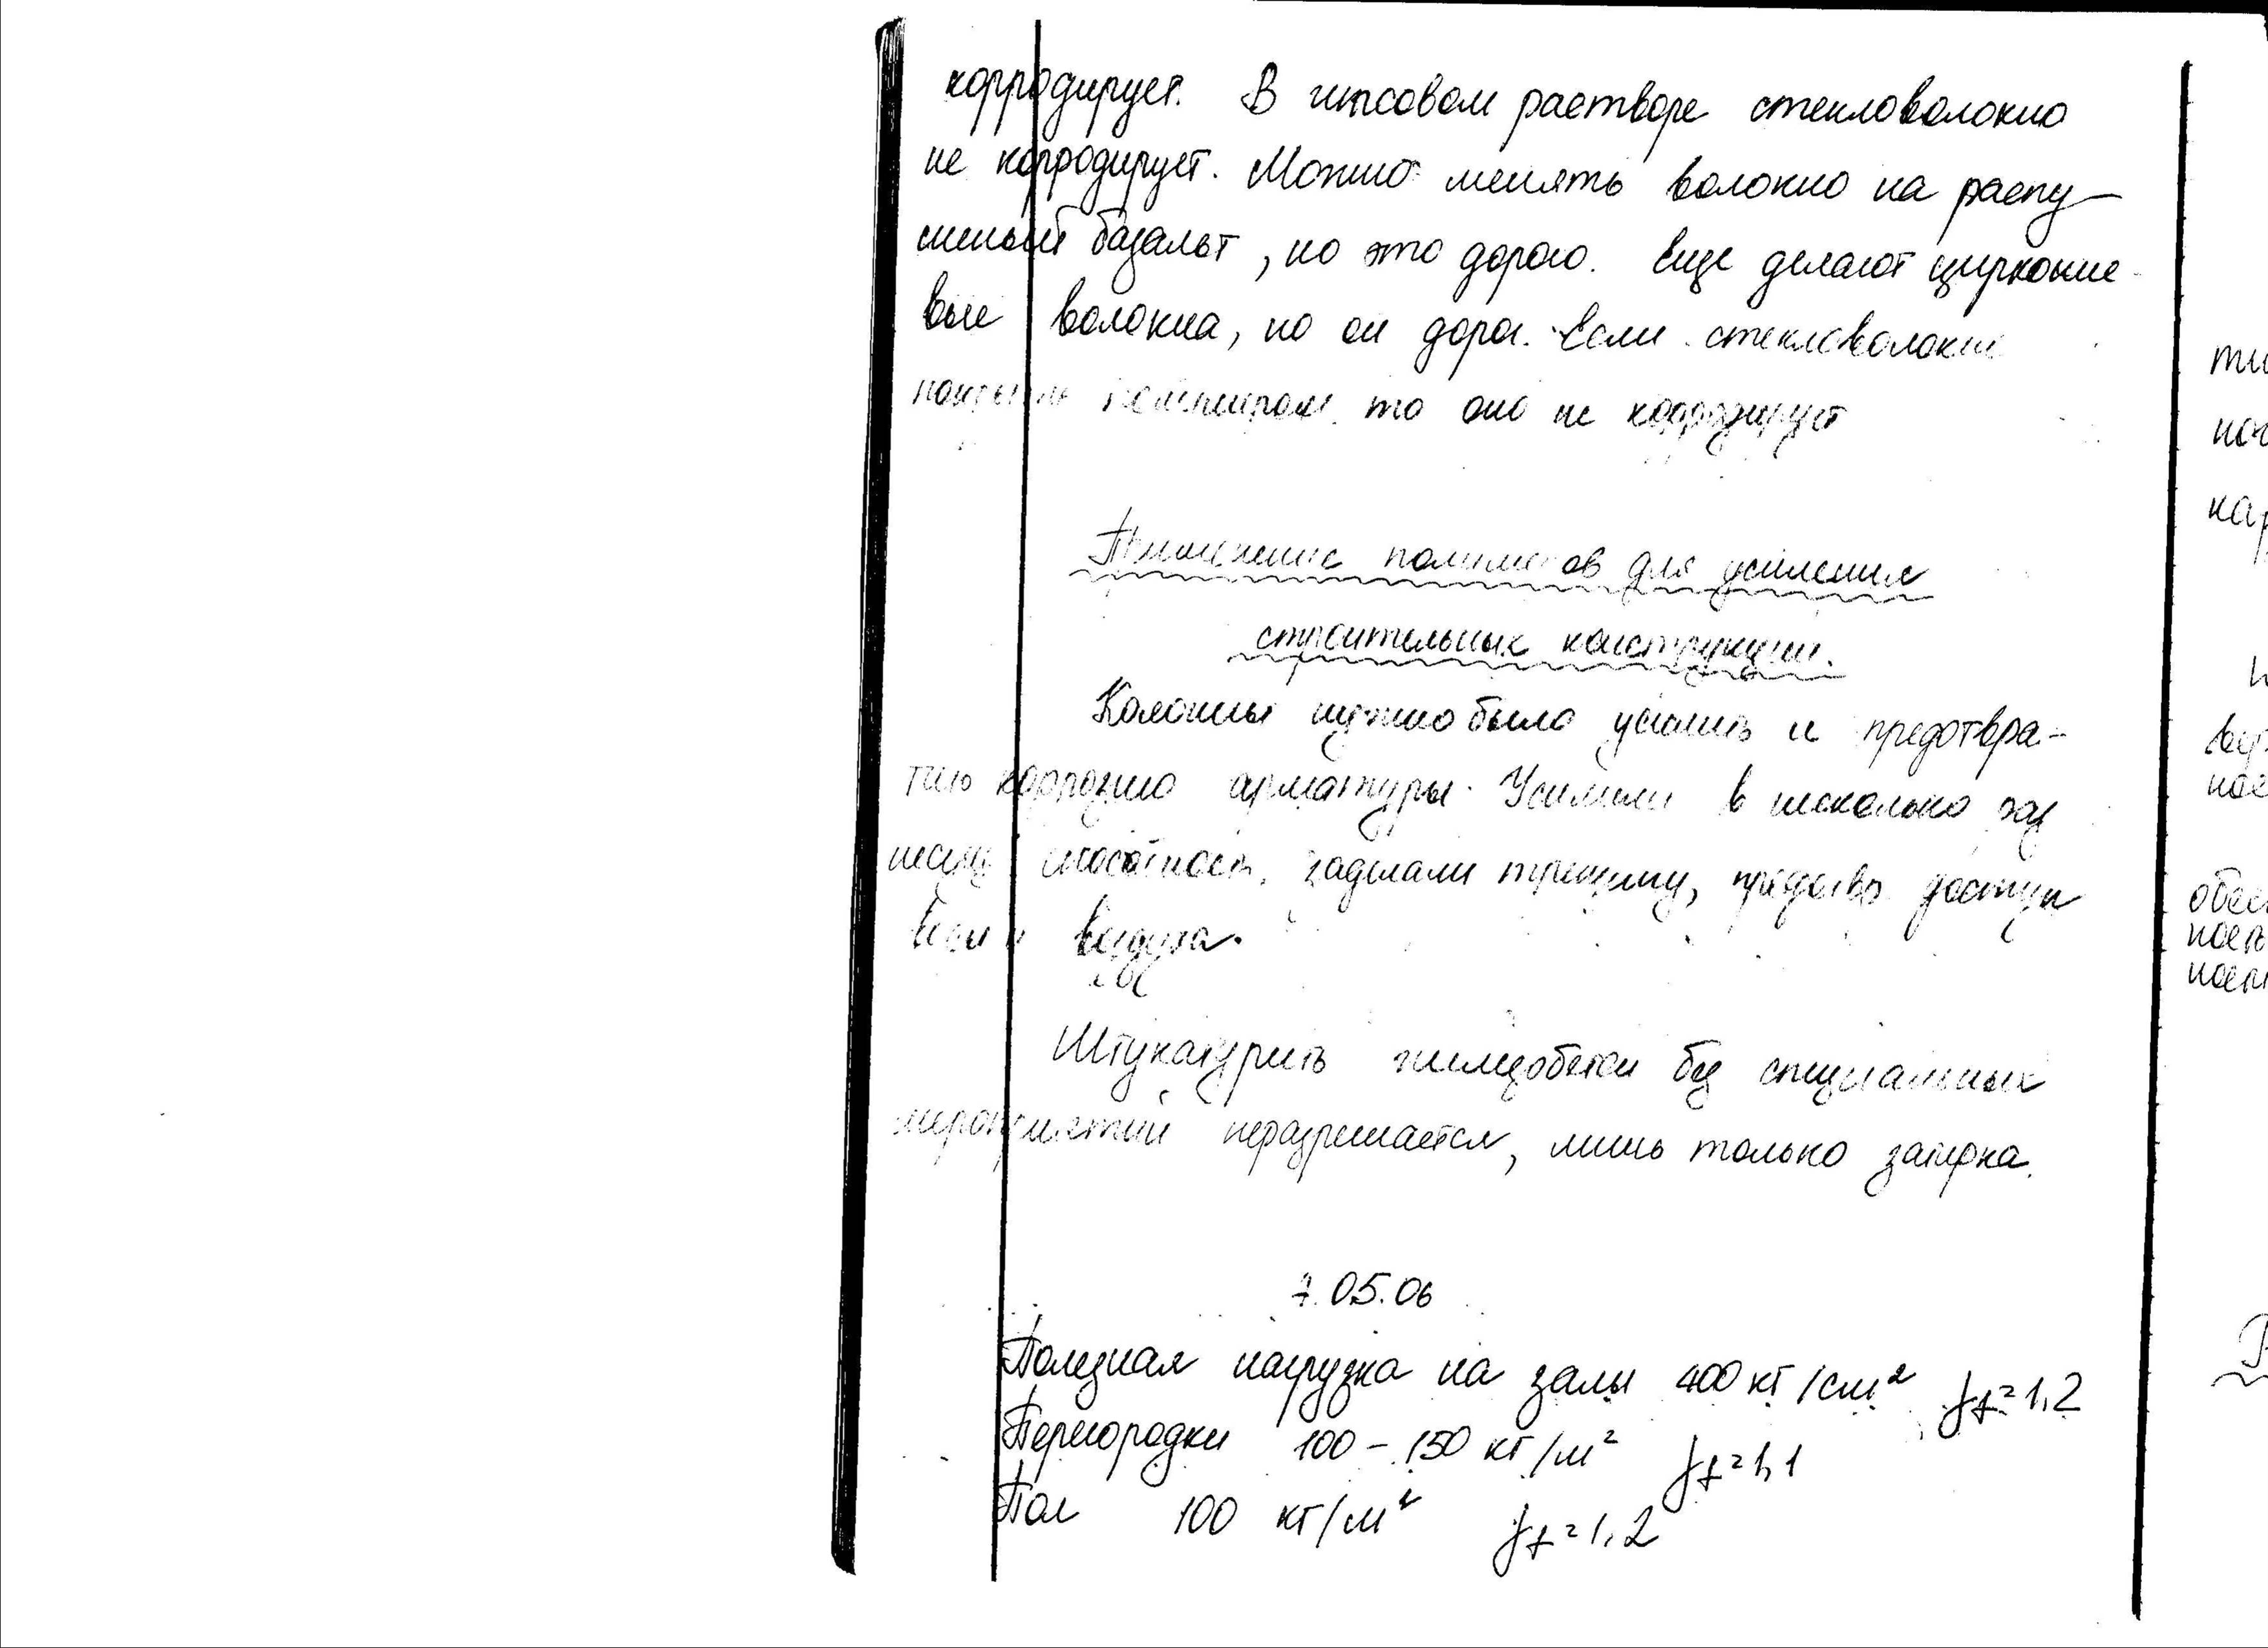 корродирует. В гипсовом растворе стекловолокно
не корродирует. Можно менять волокно на распу-
шеный базальт, но это дорого. Еще делают цирконие-
вые волокна, но он дорог. Если стекловолокно
покрыть полимером то оно не корродирует
Применение полимеров для усиления
строительных конструкций.
Колонны нужно было усилить и предотвра-
тить коррозию арматуры. Усилили в несколько раз
несущ способность, заделали трещину, доступ
воды и воздуха.
Штукатурить без специальных
мероприятий неразрешается, лишь только затирка.
7.05.06
Полезная нагрузка на залы 400 кг/см² γf=1,2
Перегородки 100-150 кг/м² γf=1,1
Пол 100 кг/м² γf=1,2